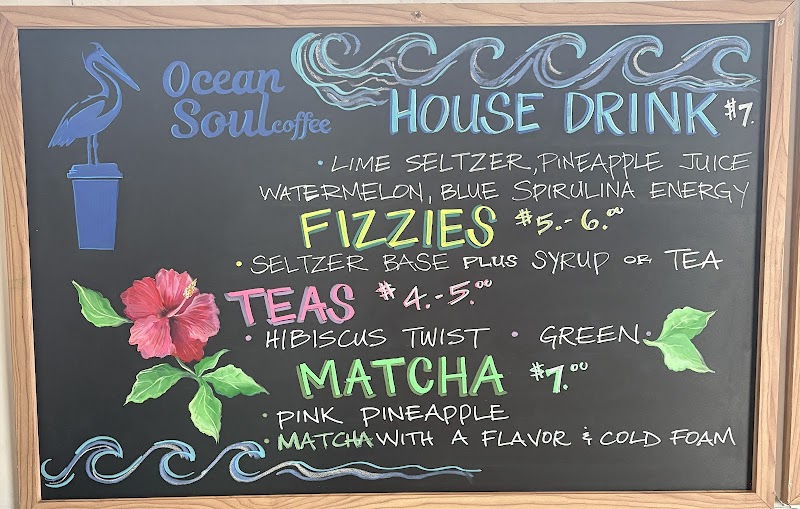 Ocean
Soul coffee
HOUSE DRINK $7.
• LIME SELTZER, PINEAPPLE JUICE
WATERMELON, BLUE SPIRULINA ENERGY
FIZZIES $5.-6.00
• SELTZER BASE PLUS SYRUP OR TEA
TEAS $4.-5.00
• HIBISCUS TWIST • GREEN •
MATCHA $7.00
• PINK PINEAPPLE
• MATCHA WITH A FLAVOR & COLD FOAM